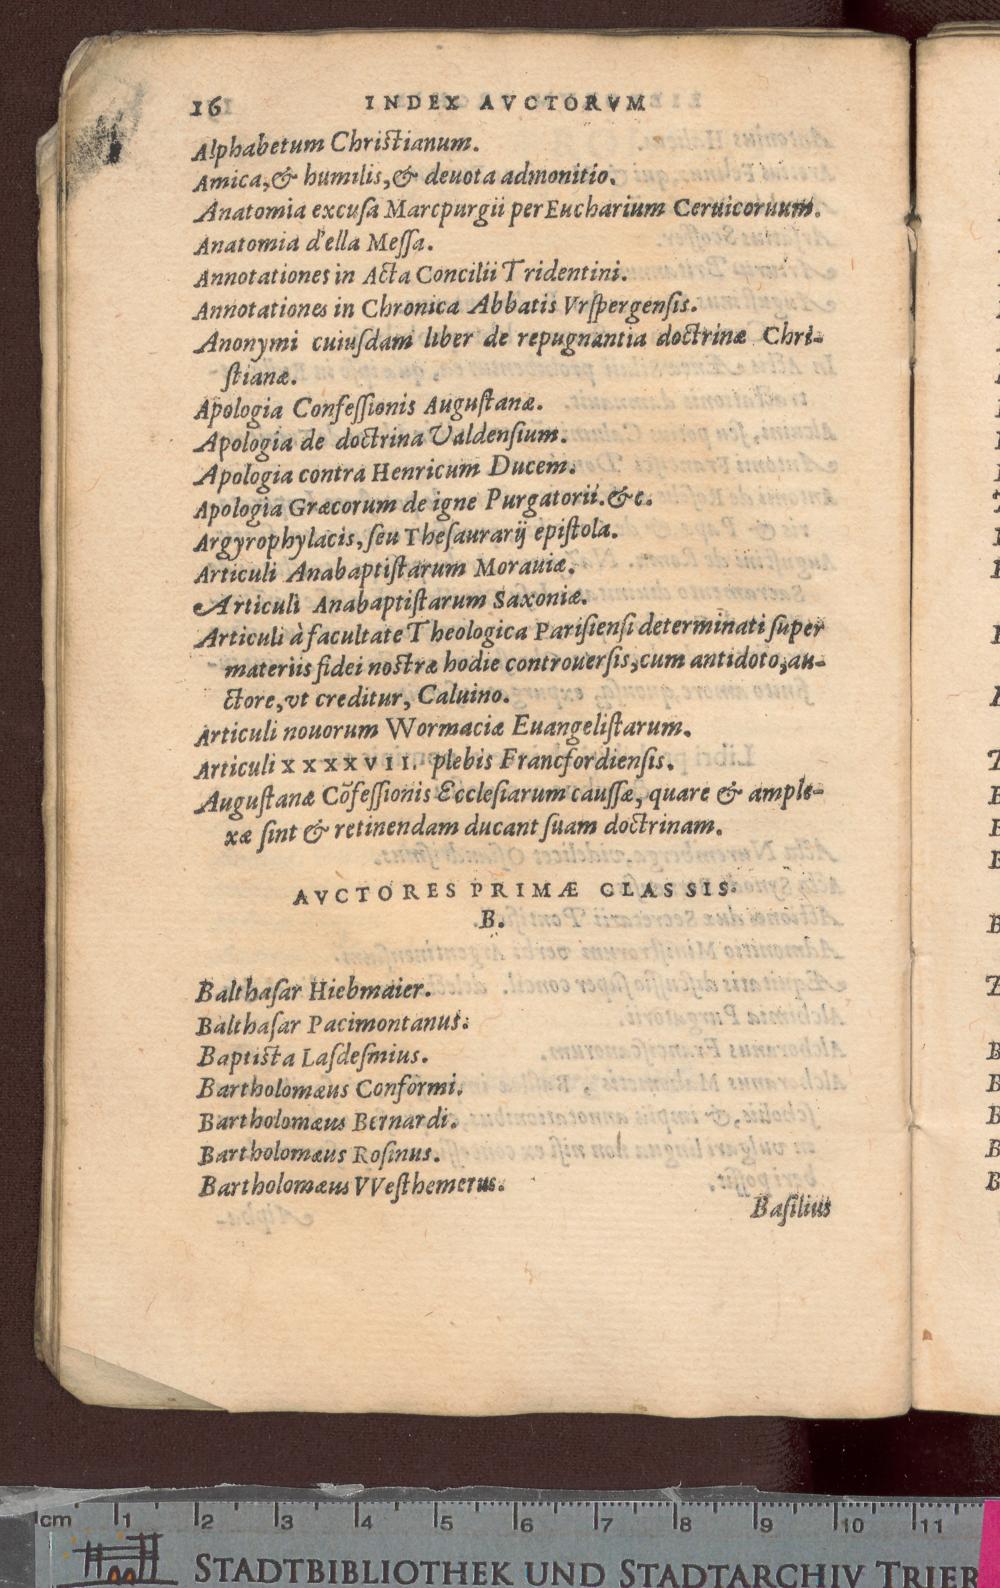 16 INDEX AVCTORVM
Alphabetum Christianum.
Amica, & humilis, & deuota admonitio.
Anatomia excuſa Marcpurgii per Eucharium Ceruicornum.
Anatomia d'ella Meſſa.
Annotationes in Acta Concilii Tridentini.
Annotationes in Chronica Abbatis Vrſpergenſis.
Anonymi cuiuſdam liber de repugnantia doctrinæ Chri-
ſtianæ.
Apologia Confeſſionis Auguſtanæ.
Apologia de doctrina Valdenſium.
Apologia contra Henricum Ducem.
Apologia Græcorum de igne Purgatorii. &c.
Argyrophylacis, ſeu Theſaurarij epiſtola.
Articuli Anabaptiſtarum Morauiæ.
Articuli Anabaptiſtarum Saxoniæ.
Articuli à facultate Theologica Pariſienſi determinati ſuper
materiis fidei noſtræ hodie controuerſis, cum antidoto, au-
ctore, vt creditur, Caluino.
Articuli nouorum Wormaciæ Euangeliſtarum.
Articuli XXXXVII. plebis Francfordienſis.
Auguſtanæ Cõfeſſionis Eccleſiarum cauſſæ, quare & ample-
xæ ſint & retinendam ducant ſuam doctrinam.
AVCTORES PRIMÆ CLASSIS.
B.
Balthaſar Hiebmaier.
Balthaſar Pacimontanus.
Baptiſta Laſdeſmius.
Bartholomæus Conformi.
Bartholomæus Bernardi.
Bartholomæus Roſinus.
Bartholomæus VVeſthemerus.
Baſilius
cm 1 2 3 4 5 6 7 8 9 10 11
STADTBIBLIOTHEK UND STADTARCHIV TRIER